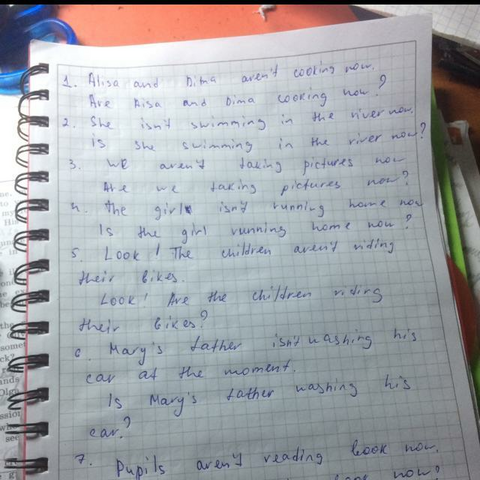 1. Alisa and Dima aren't cooking now.
Are Alisa and Dima cooking now?
2. She isn't swimming in the river now.
Is she swimming in the river now?
3. We aren't taking pictures now
Are we taking pictures now?
4. The girl isn't running home now
Is the girl running home now?
5. Look! The children aren't riding
their bikes.
Look! Are the children riding
their bikes?
6. Mary's father isn't washing his
car at the moment.
Is Mary's father washing his
car?
7. Pupils aren't reading book now.
now?